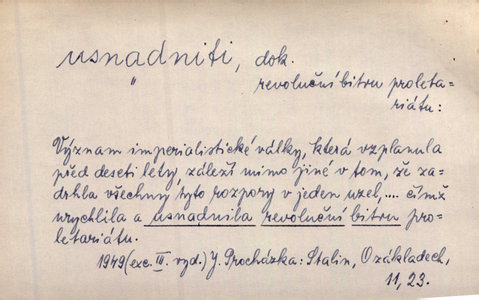 usnadniti, dok.
" revoluční bitvu proleta=
riátu:
Význam imperialistické války, která vzplanula
před deseti lety, záleží mimo jiné v tom, že za-
drhla všechny tyto rozpory v jeden uzel,.... čímž
urychlila a usnadnila revoluční bitvu pro-
letariátu.
1949 (exc. III. vyd.) J. Procházka: Stalin, O základech,
11, 23.